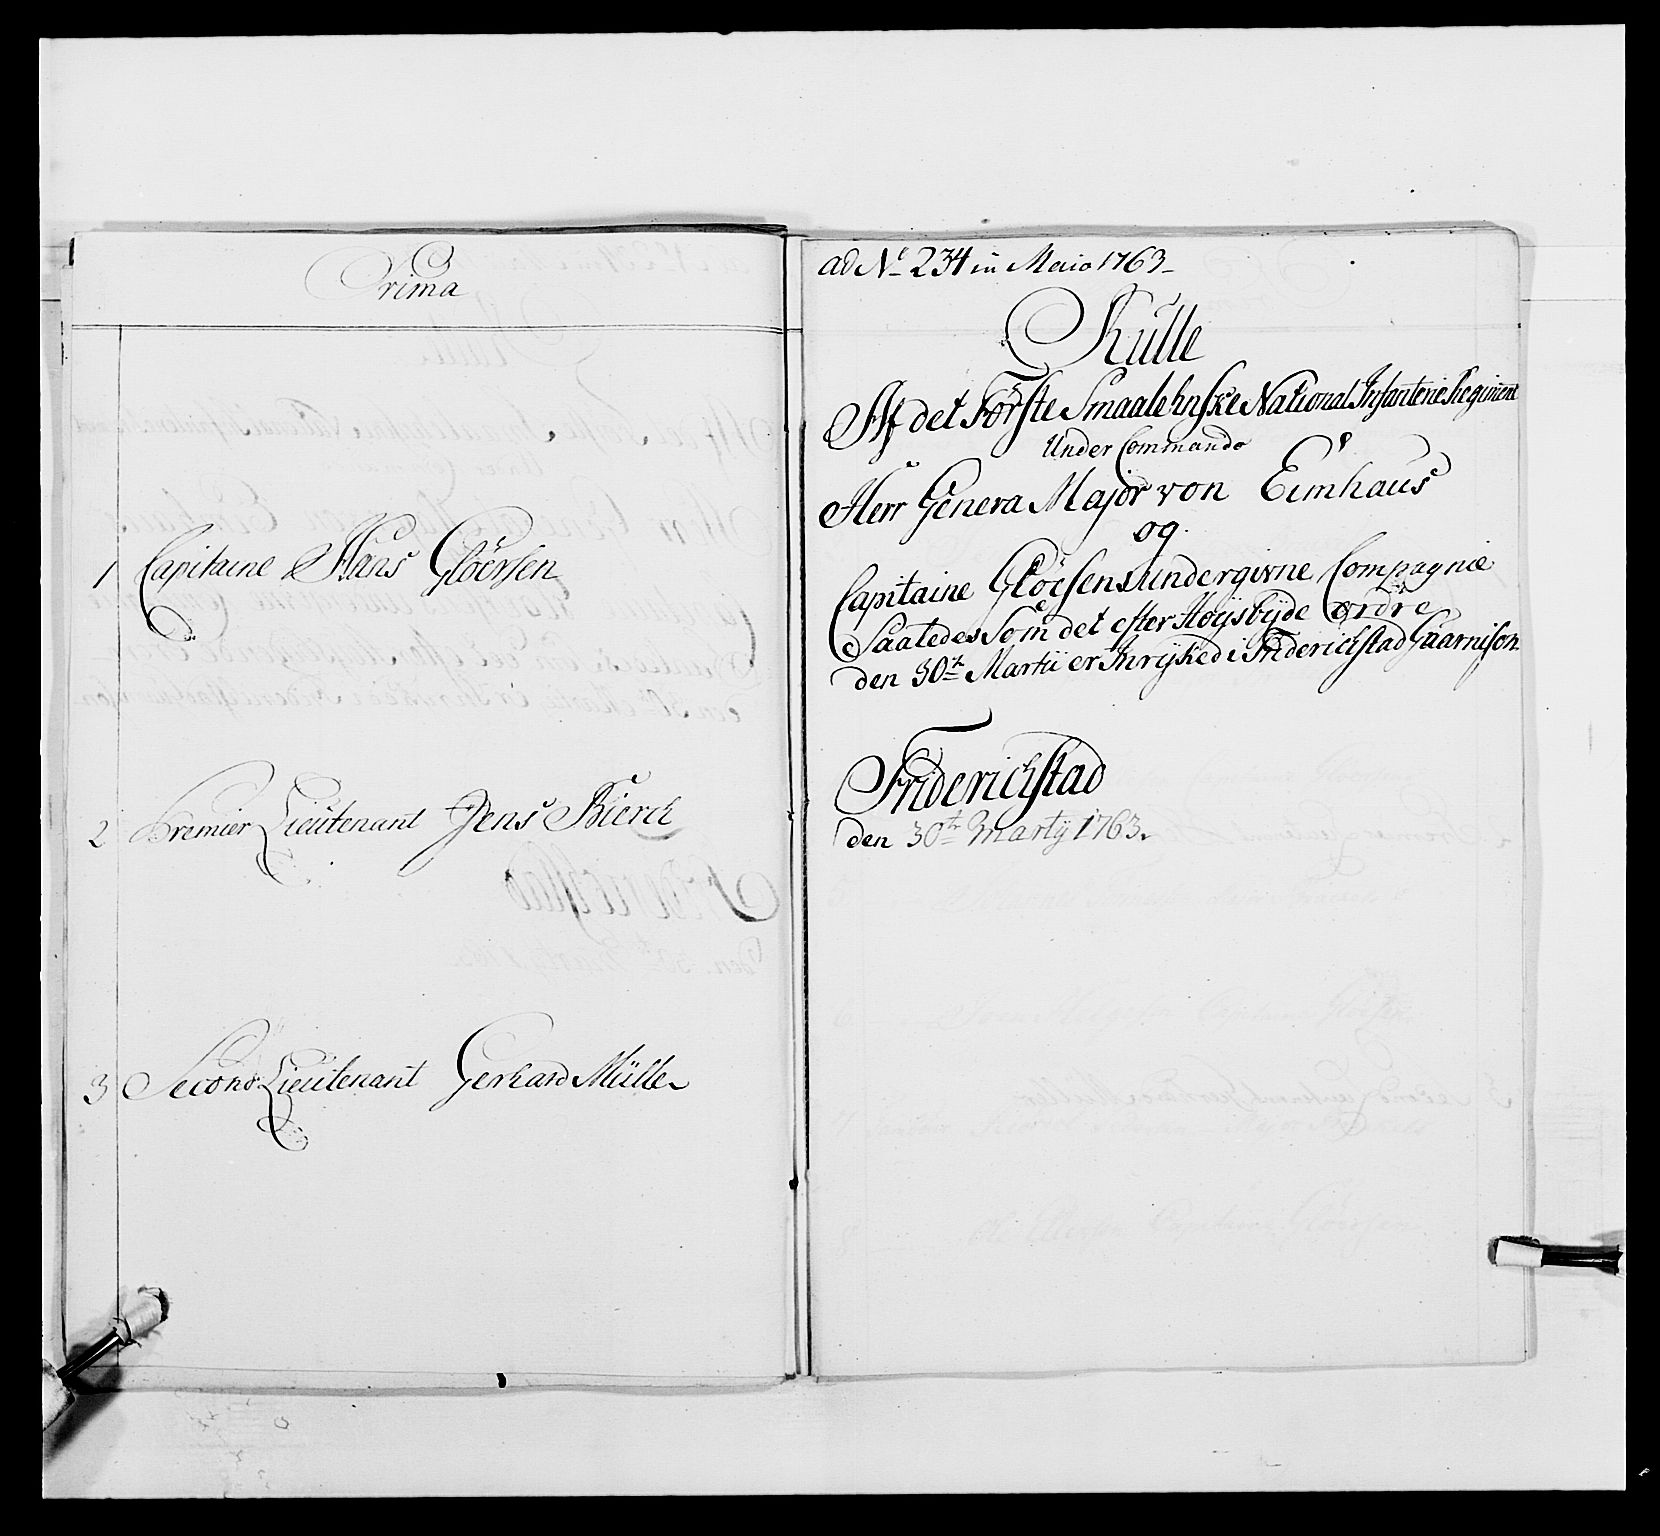 Prima
1 Capitaine Hans Glöersen
2 Premier Lieutenant Jens Bierch
3 Second Lieutenant Gerhard Müller
ad No 234 in Maio 1763
Rulle
Af det Förste Smaalehnske National Infanterie Regiment
Under Commando
Herr Genera Major von Eimhaus
og
Capitaine Glöersens undergivne Compagnie
Saaledes Som det efter Høysbyde Ordre
den 30te Martii er Inryked i Friderichstad Guarnison.
Friderichstad
den 30te Martij 1763.